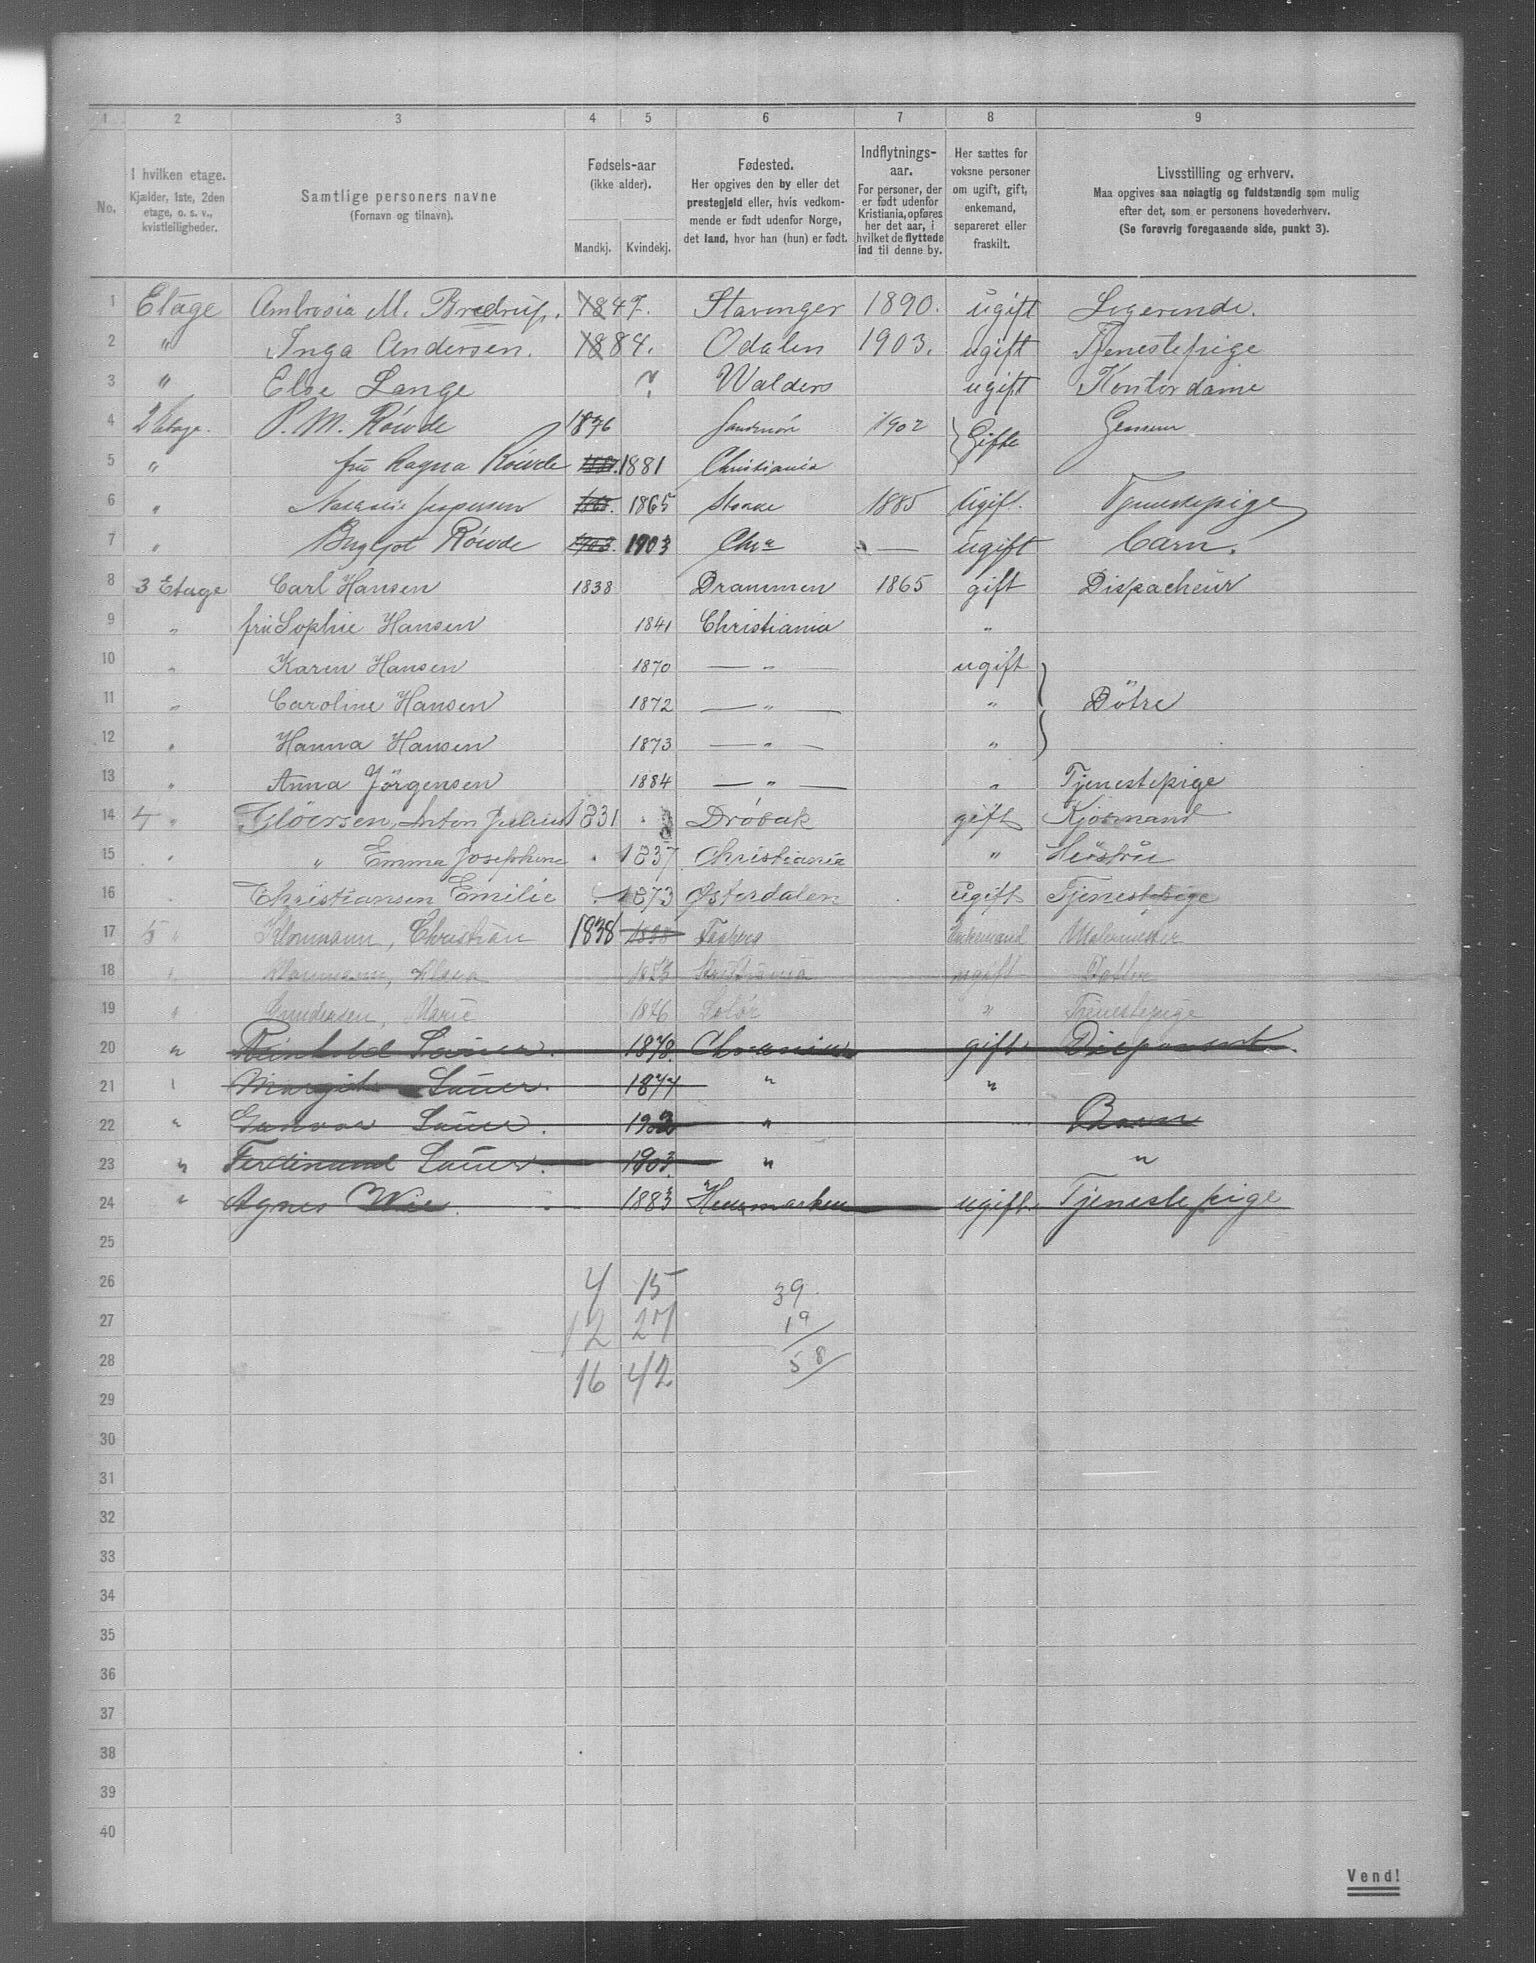 1 2 3 4 5 6 7 8 9
No.
I hvilken etage.
Kjælder, 1ste, 2den
etage, o. s. v.,
kvistleiligheder.
Samtlige personers navne
(Fornavn og tilnavn).
Fødsels-aar
(ikke alder).
Mandkj. Kvindekj.
Fødested.
Her opgives den by eller det
prestegjeld eller, hvis vedkom-
mende er født udenfor Norge,
det land, hvor han (hun) er født.
Indflytnings-
aar.
For personer, der
er født udenfor
Kristiania, opføres
her det aar, i
hvilket de flyttede
ind til denne by.
Her sættes for
voksne personer
om ugift, gift,
enkemand,
separeret eller
fraskilt.
Livsstilling og erhverv.
Maa opgives saa nøiagtig og fuldstændig som mulig
efter det, som er personens hovederhverv.
(Se forøvrig foregaaende side, punkt 3).
1 Etage Ambrosia M. Bredrup. 1847. Stavanger 1890. ugift Logerende.
2 " Inga Andersen. 1884. Odalen 1903. ugift Tjenestepige
3 " Else Lange ? Walders ugift Kontordame
4 2 Etage. P. M. Röwde 1876 Søndmör 1902 Gifte
5 " fru Ragna Röwde 1881 1881 Christiania
6 " Jespersen 1865. 1865 1885 Ugift. Tjenestepige
7 " Röwde 1903. 1903 Chra — ugift Barn.
8 3 Etage Carl Hansen 1838 Drammen 1865 gift Dispacheur
9 " fru Sophie Hansen 1841 Christiania "
10 " Karen Hansen 1870 — " — ugift
11 " Caroline Hansen 1872 — " — " Dötre
12 " Hanna Hansen 1873 — " — "
13 " Anna Jörgensen 1884 — " — " Tjenestepige
14 4 " Glöersen, Anton Julius 1831 Dröbak gift Kjöbmand
15 " " Emma Josephine 1837 Christiania " Hustru
16 Christiansen Emilie 1873 Østerdalen ugift Tjenestepige
17 5 " Christian 1838 1838 Faaberg Enkemand Malermester
18 " Klara 1853 Kristiania ugift Datter
19 " Gundersen, Marie 1876 Solör " Tjenestepige
20 " Reinhold Sauer. 1878. Chrania gift Disponent.
21 " Margit Sauer. 1877 " "
22 " Gunvor Sauer. 1902 " Barn
23 " Ferdinand Sauer. 1903. " "
24 " Agnes Wie. 1883 Hedemarken ugift. Tjenestepige
25
26 4 15 39
27 12 27 19
28 16 42 58
29
30
31
32
33
34
35
36
37
38
39
40
Vend!